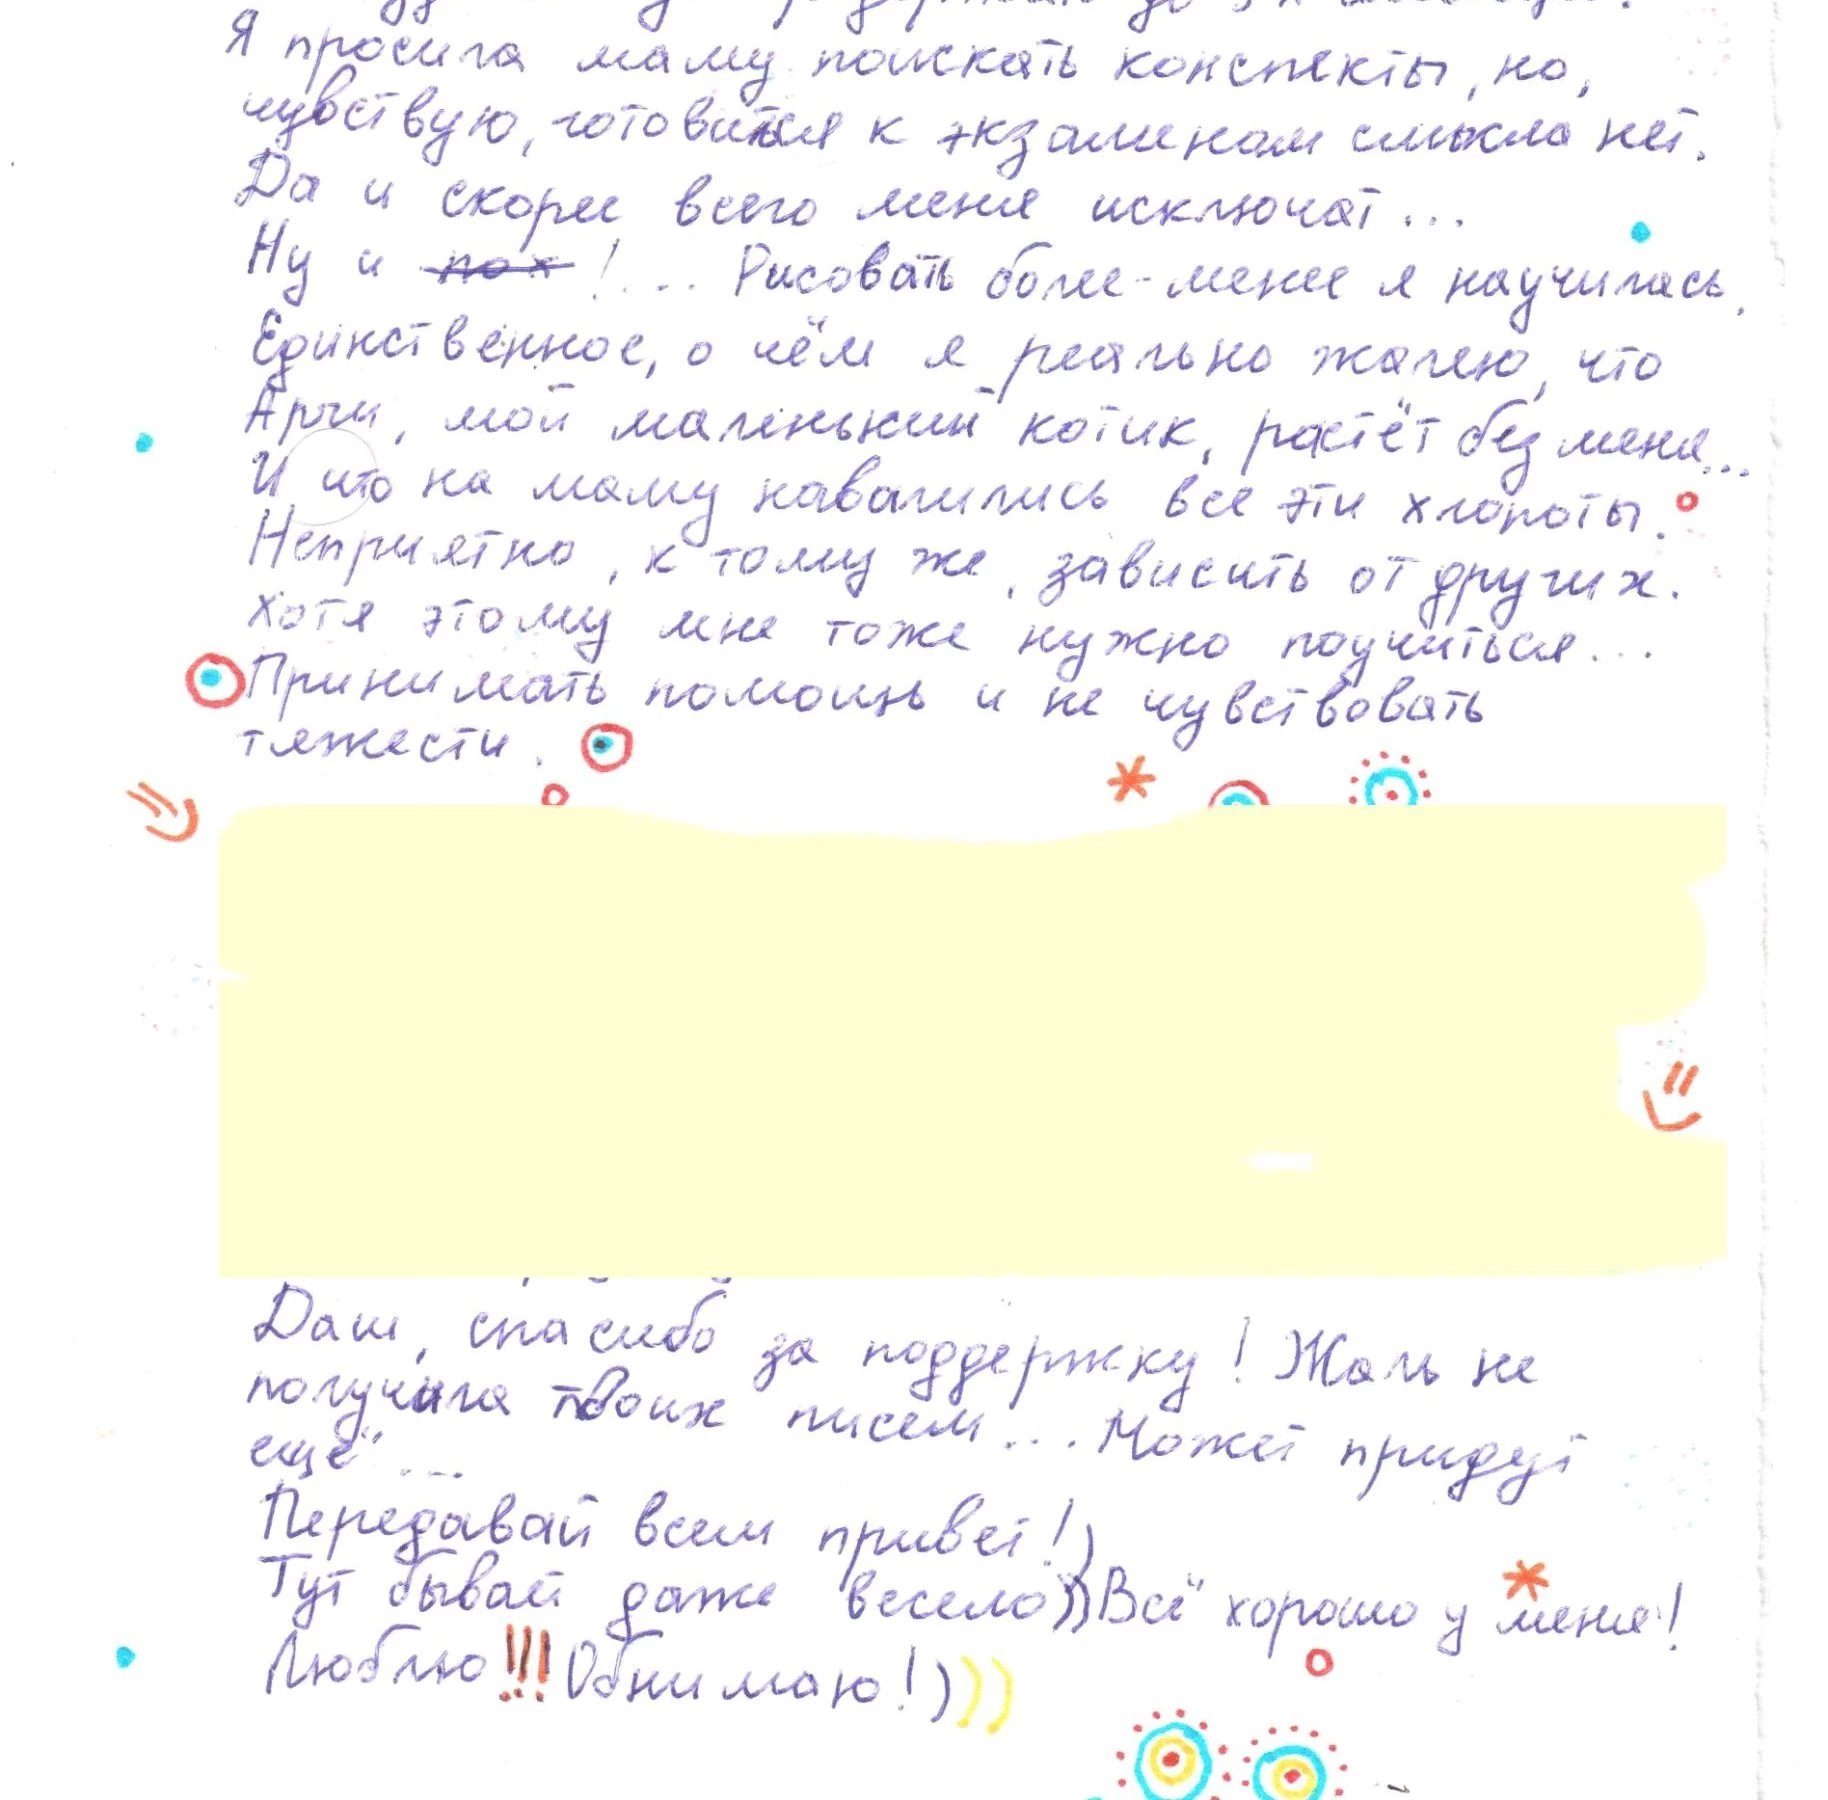 Я просила маму поискать конспекты, но,
чувствую, готовиться к экзаменам смысла нет.
Да и скорее всего меня исключат...
Ну и пох !... Рисовать более-менее я научилась.
Единственное, о чём я реально жалею, что
Арчи, мой маленький котик, растёт без меня...
И что на маму навалились все эти хлопоты.
Неприятно, к тому же, зависить от других.
Хотя этому мне тоже нужно поучиться...
Принимать помощь и не чувствовать
тяжести.
Даш, спасибо за поддержку! Жаль не
получила твоих писем... Может придут
ещё...
Передавай всем привет!)
Тут бывай даже весело)) Всё хорошо у меня!
Люблю!!! Обнимаю!)))